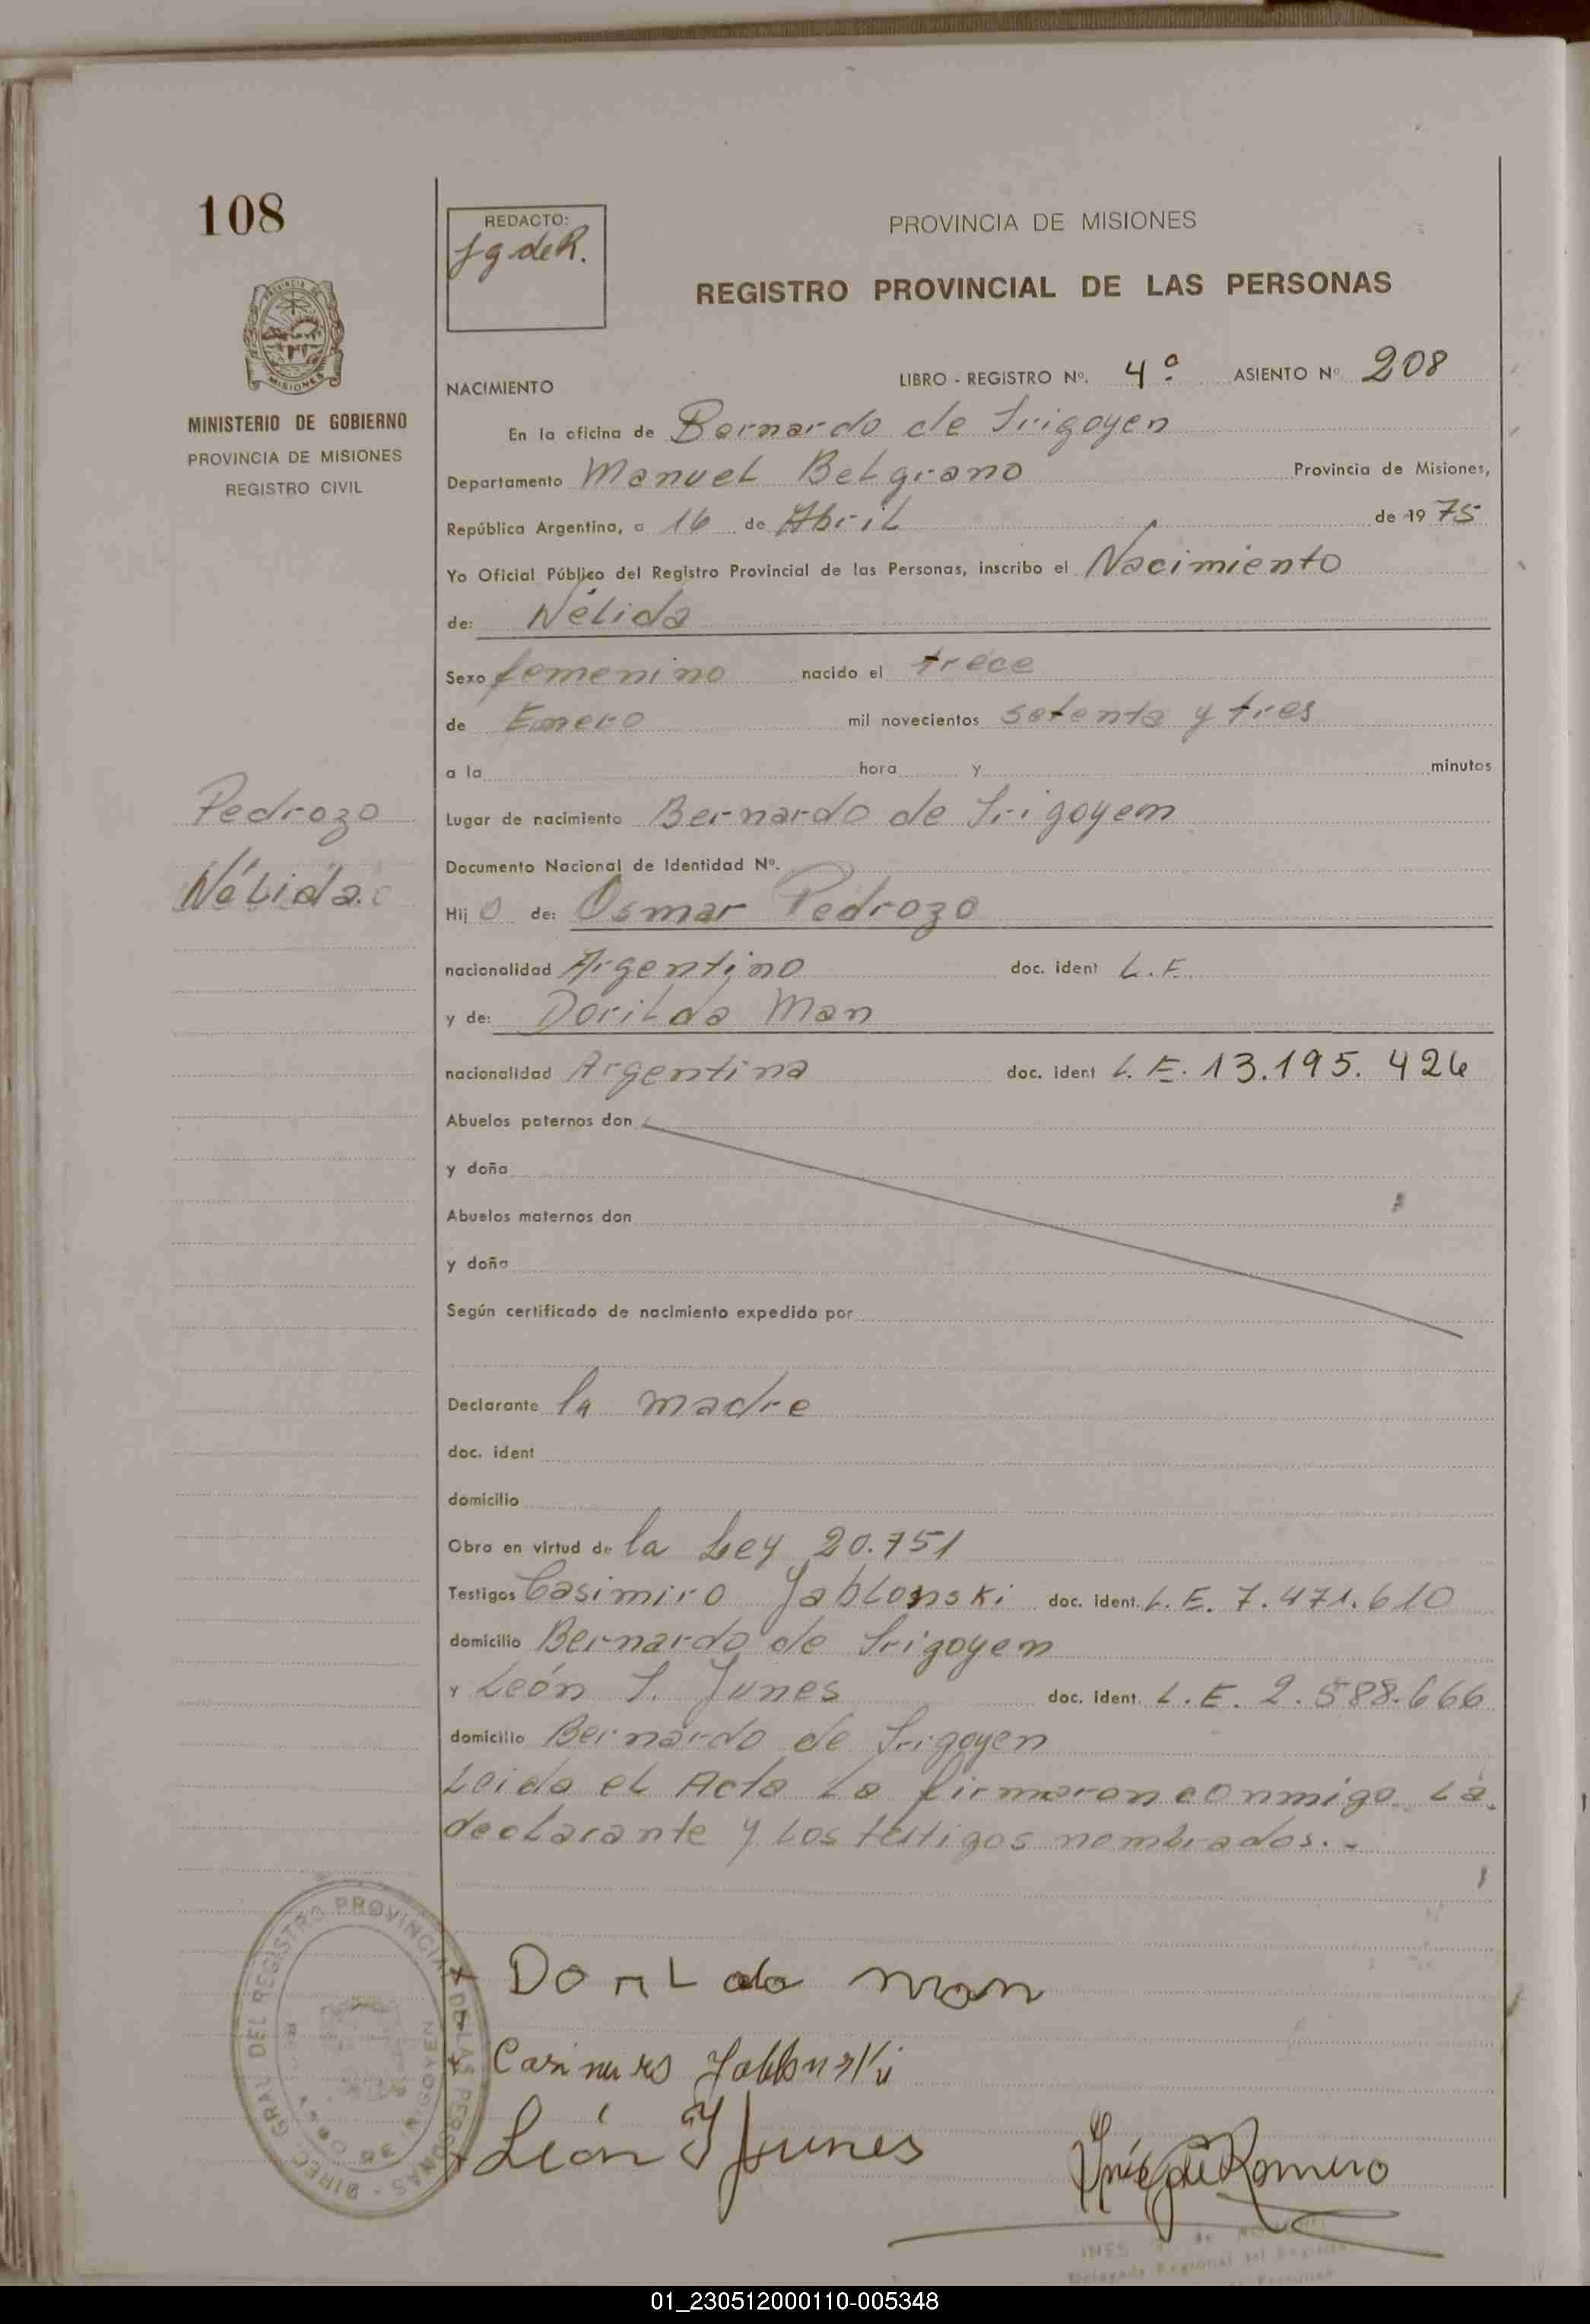 108
REDACTO:
J g de R.
PROVINCIA DE MISIONES
REGISTRO PROVINCIAL DE LAS PERSONAS
MISIONES
MINISTERIO DE GOBIERNO
PROVINCIA DE MISIONES
REGISTRO CIVIL
NACIMIENTO LIBRO - REGISTRO Nº. 4º ASIENTO Nº 208
En la oficina de Bernardo de Irigoyen
Departamento Manuel Belgrano Provincia de Misiones,
República Argentina, a 16 de Abril de 1975
Yo Oficial Público del Registro Provincial de las Personas, inscribo el Nacimiento
de: Nélida
Sexo femenino nacido el trece
de Enero mil novecientos setenta y tres
a la hora y minutos
Pedrozo
Nélida
Lugar de nacimiento Bernardo de Irigoyem
Documento Nacional de Identidad Nº.
Hij o de: Osmar Pedrozo
nacionalidad Argentino doc. ident L.E.
y de: Dorilda Man
nacionalidad Argentina doc. ident L.E. 13.195.426
Abuelos paternos don
y doña
Abuelos maternos don
y doña
Según certificado de nacimiento expedido por
Declarante la madre
doc. ident
domicilio
Obra en virtud de la Ley 20.751
Testigos Casimiro Jablonski doc. ident. L.E. 7.471.610
domicilio Bernardo de Irigoyen
y León I. Junes doc. ident. L.E. 2.588.666
domicilio Bernardo de Irigoyen
Leida el Acta la firmaron conmigo la
declarante y los testigos nombrados.-
Dorilda man
Casimiro Jablonski
León I Junes
Inés g de Romero
DIREC. GRAL DEL REGISTRO PROVINCIAL DE LAS PERSONAS
INES de
Delegada Regional del Registro
Personas
01_230512000110-005348